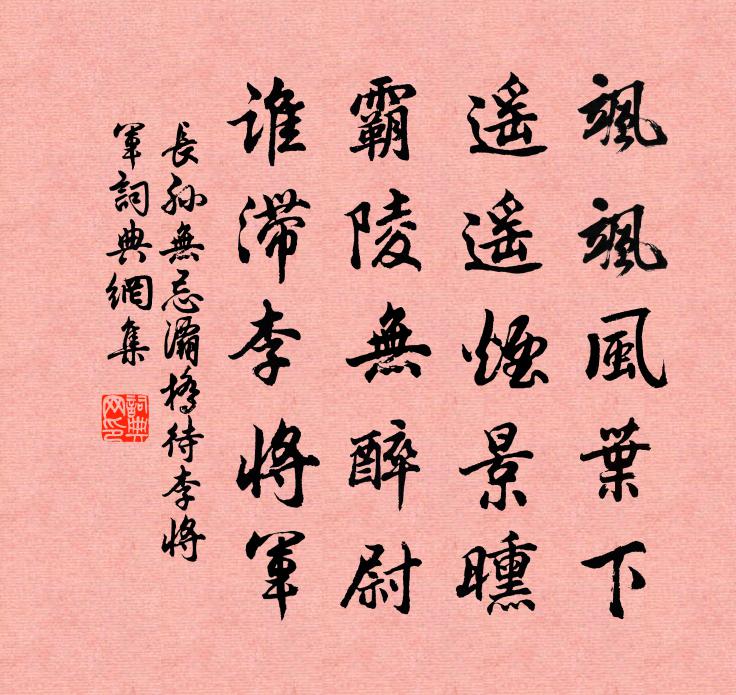 颯颯風葉下
遥遥煙景曛
霸陵無醉尉
誰滯李將軍
長孫無忌灞橋待李將
軍詞典網集
詞典
网印